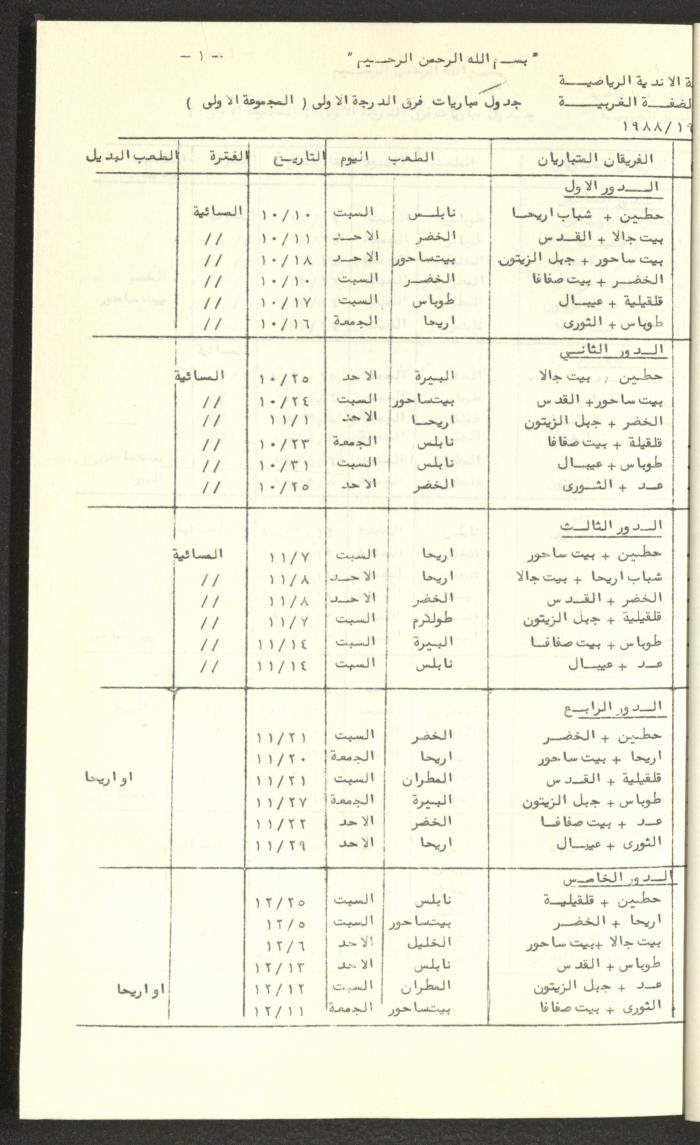 "بسم الله الرحمن الرحيم" - ١ -
ة الاندية الرياضية
لضفة الغربية جدول مباريات فرق الدرجة الاولى ( المجموعة الاولى )
١٩٨٨/١٩
الفريقان المتباريان الملعب اليوم التاريخ الفترة الملعب البديل
الدور الاول
حطين + شباب اريحا نابلس السبت ١٠/١٠ المسائية
بيت جالا + القدس الخضر الاحد ١٠/١١ //
بيت ساحور + جبل الزيتون بيت ساحور الاحد ١٠/١٨ //
الخضر + بيت صفافا الخضر السبت ١٠/١٠ //
قلقيلية + عيبال طوباس السبت ١٠/١٧ //
طوباس + الثورى اريحا الجمعة ١٠/١٦ //
الدور الثاني
حطين . بيت جالا البيرة الاحد ١٠/٢٥ المسائية
بيت ساحور+ القدس بيت ساحور السبت ١٠/٢٤ //
الخضر + جبل الزيتون اريحا الاحد ١١/١ //
قلقلة + بيت صفافا نابلس الجمعة ١٠/٢٣ //
طوباس + عيبال نابلس السبت ١٠/٣١ //
عد + الثورى الخضر الاحد ١٠/٢٥ //
الدور الثالث
حطين + بيت ساحور اريحا السبت ١١/٧ المسائية
شباب اريحا + بيت جالا اريحا الاحد ١١/٨ //
الخضر + القدس الخضر الاحد ١١/٨ //
قلقيلية + جبل الزيتون طولكرم السبت ١١/٧ //
طوباس + بيت صفافا البيرة السبت ١١/١٤ //
عد + عيبال نابلس السبت ١١/١٤ //
الدور الرابع
حطين + الخضر الخضر السبت ١١/٢١
اريحا + بيت ساحور اريحا الجمعة ١١/٢٠
قلقيلية + القدس المطران السبت ١١/٢١ او اريحا
طوباس + جبل الزيتون البيرة الجمعة ١١/٢٧
عد + بيت صفافا الخضر الاحد ١١/٢٢
الثورى + عيبال اريحا الاحد ١١/٢٩
الدور الخامس
حطين + قلقيلية نابلس السبت ١٢/٢٥
اريحا + الخضر بيت ساحور السبت ١٢/٥
بيت جالا +بيت ساحور الخليل الاحد ١٢/٦
طوباس + القدس نابلس الاحد ١٢/١٣
عد + جبل الزيتون المطران السبت ١٢/١٢ او اريحا
الثورى + بيت صفافا بيت ساحور الجمعة ١٢/١١